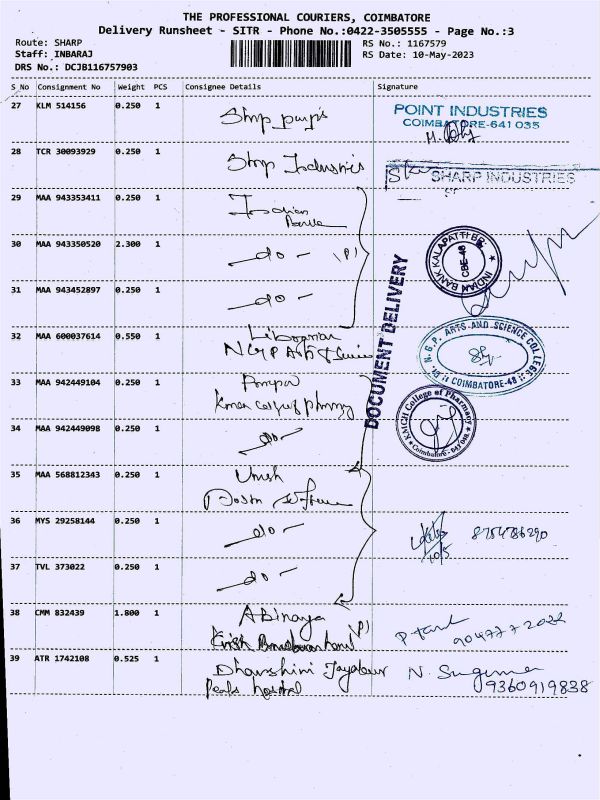 THE PROFESSIONAL COURIERS, COIMBATORE
Delivery Runsheet - SITR - Phone No.:0422-3505555 - Page No.:3
Route: SHARP
RS No.: 1167579
Staff: INBARAJ
RS Date: 10-May-2023
DRS No.: DCJB116757903
S No Consignment No Weight PCS Consignee Details Signature
27 KLM 514156 0.250 1
POINT INDUSTRIES
COIMBATORE-641 035
28 TCR 30093929 0.250 1
SHARP INDUSTRIES
29 MAA 943353411 0.250 1 Indian
Bank
30 MAA 943350520 2.300 1 - do - (P)
INDIAN BANK KALAPATTI BR.
CBE-48
31 MAA 943452897 0.250 1 - do -
DOCUMENT DELIVERY
32 MAA 600037614 0.550 1
NGP Arts &
Dr. N.G.P. ARTS AND SCIENCE COLLEGE
COIMBATORE-48
33 MAA 942449104 0.250 1
KMCH College of Pharmacy
Coimbatore - 641 048
34 MAA 942449098 0.250 1 - do -
35 MAA 568812343 0.250 1
36 MYS 29258144 0.250 1 - do -
10/5
37 TVL 373022 0.250 1 - do -
38 CMM 832439 1.800 1 Abinaya
(P)
39 ATR 1742108 0.525 1 Dharshini
9360919838